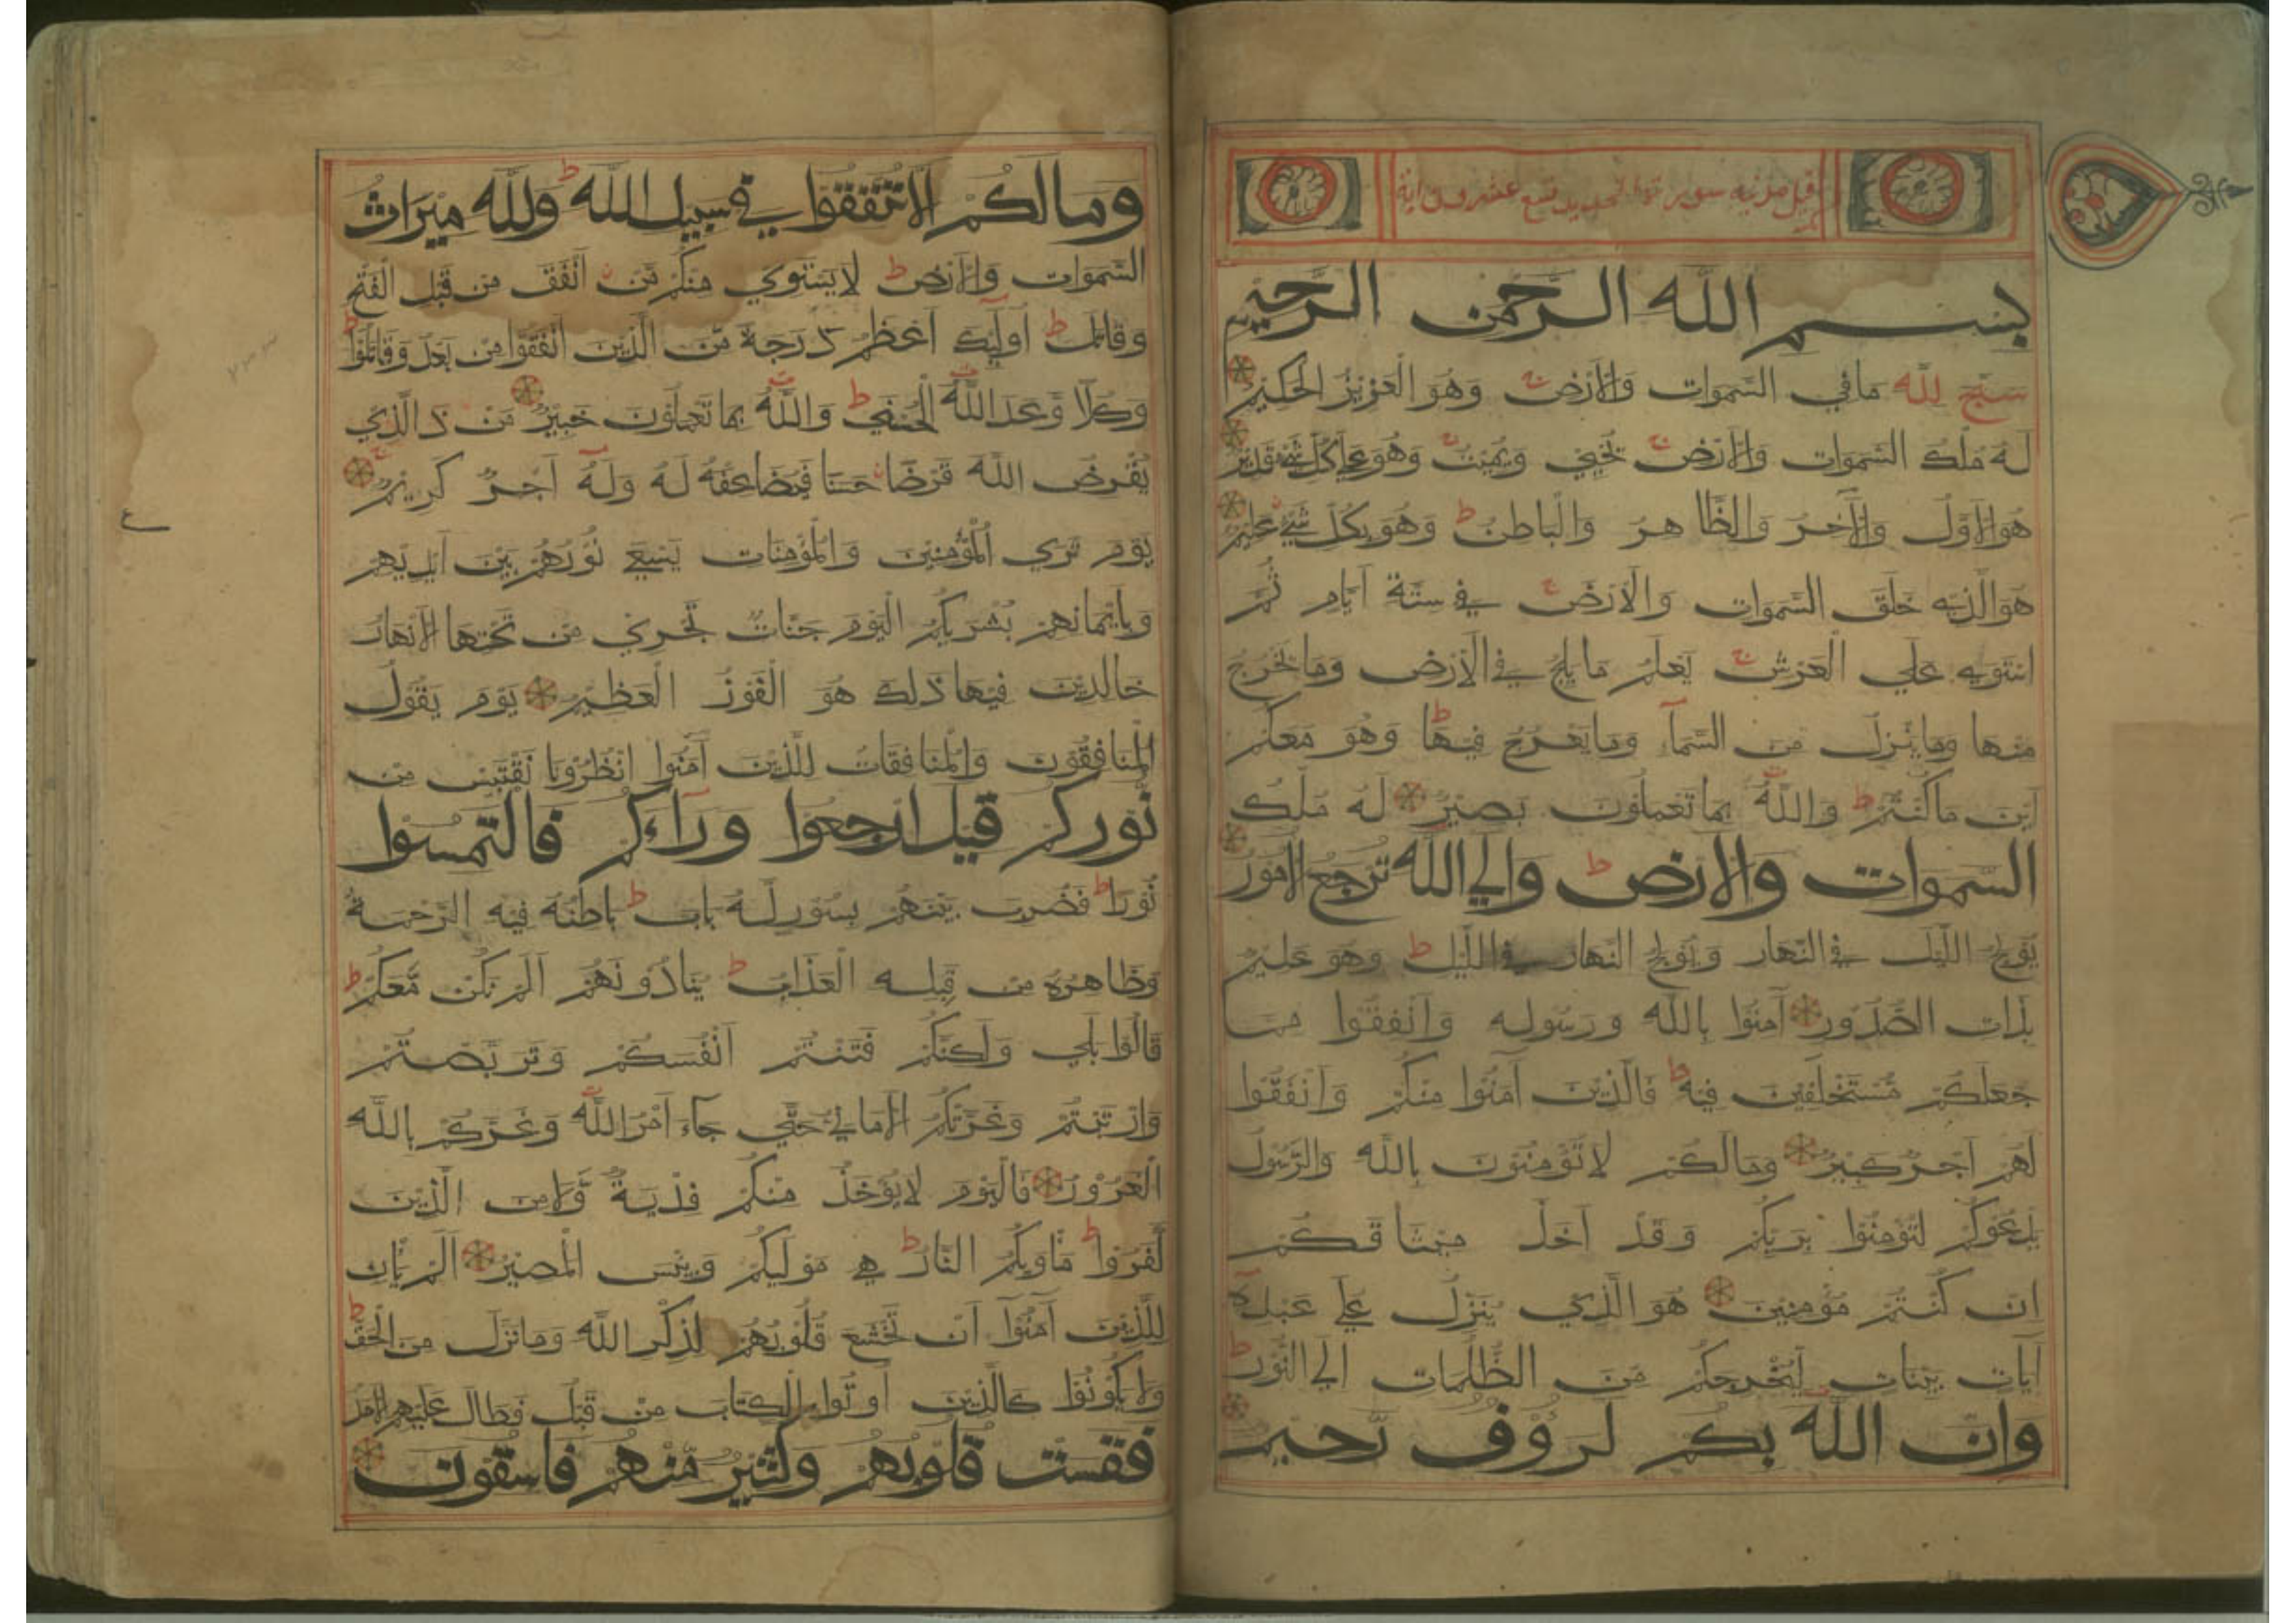 قيل مدنيه سورة الحديد تسع عشرون اية
بسم الله الرحمن الرحيم
سبح لله ما في السموات والارض وهو العزيز الحكيم
له ملك السموات والارض يحيي ويميت وهو علي كل شيء قدير
هو الاول والآخر والظاهر والباطن وهو بكل شيء عليم
هو الذي خلق السموات والارض في ستة ايام ثم
استوي علي العرش يعلم ما يلج في الارض وما يخرج
منها وما ينزل من السمآ وما يعرج فيها وهو معكم
اين ما كنتم والله بما تعملون بصير له ملك
السموات والارض والي الله ترجع الامور
يولج الليل في النهار ويولج النهار في الليل وهو عليم
بذات الصدور آمنوا بالله ورسوله وانفقوا مما
جعلكم مستخلفين فيه فالذين آمنوا منكم وانفقوا
لهم اجر كبير ومالكم لا تؤمنون بالله والرسول
يدعوكم لتؤمنوا بربكم وقد اخذ ميثاقكم
ان كنتم مؤمنين هو الذي ينزل علي عبده
آيات بينات ليخرجكم من الظلمات الي النور
وان الله بكم لرؤف رحيم
ومالكم الا تنفقوا في سبيل الله ولله ميراث
السموات والارض لا يستوي منكم من انفق من قبل الفتح
وقاتل اوليك اعظم درجة من الذين انفقوا من بعد وقاتلوا
وكلا وعد الله الحسني والله بما تعملون خبير من ذا الذي
يقرض الله قرضا حسنا فيضاعفه له وله اجر كريم
يوم تري المؤمنين والمؤمنات يسعي نورهم بين ايديهم
وبايمانهم بشريكم اليوم جنات تجري من تحتها الانهار
خالدين فيها ذلك هو الفوز العظيم يوم يقول
المنافقون والمنافقات للذين آمنوا انظرونا نقتبس من
نوركم قيل ارجعوا ورآءكم فالتمسوا
نورا فضرب بينهم بسور له باب باطنه فيه الرحمة
وظاهره من قبله العذاب ينادونهم الم نكن معكم
قالوا بلي ولكنكم فتنتم انفسكم وتربصتم
وارتبتم وغرتكم الاماني حتي جآء امر الله وغركم بالله
الغرور فاليوم لا يؤخذ منكم فدية ولا من الذين
كفروا ماويكم النار هي موليكم وبئس المصير الم يان
للذين آمنوا ان تخشع قلوبهم لذكر الله وما نزل من الحق
ولا يكونوا كالذين اوتوا الكتاب من قبل فطال عليهم الامد
فقست قلوبهم وكثير منهم فاسقون